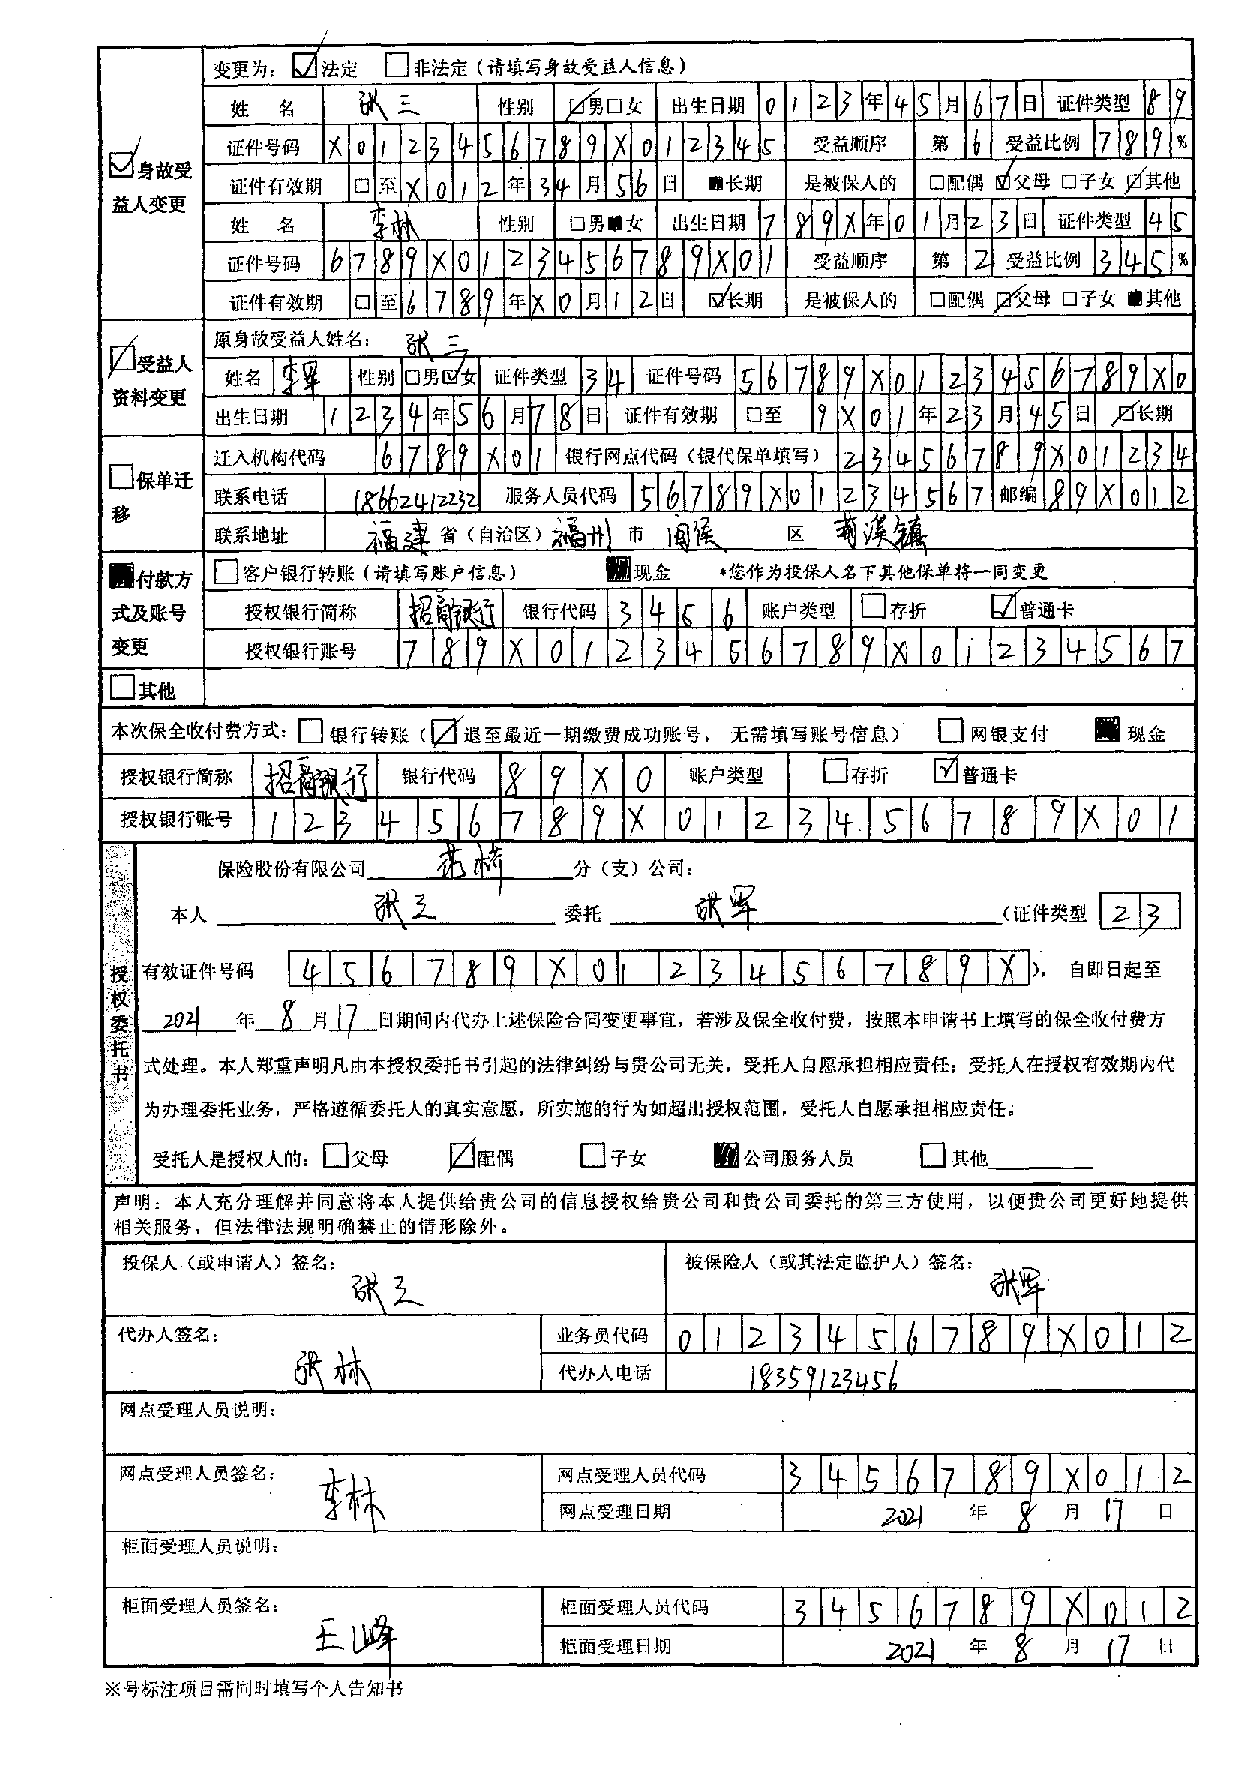 变更为：☑法定 □非法定（请填写身故受益人信息）
☑身故受益人变更
姓 名 张三 性别 ☑男□女 出生日期 0123年45月67日 证件类型 89
证件号码 X0123456789X012345 受益顺序 第6 受益比例 789%
证件有效期 □至X012年34月56日 ■长期 是被保人的 □配偶 ☑父母 □子女 ☑其他
姓 名 李林 性别 □男■女 出生日期 789X年01月23日 证件类型 45
证件号码 6789X0123456789X01 受益顺序 第2 受益比例 345%
证件有效期 □至6789年X0月12日 ☑长期 是被保人的 □配偶 ☑父母 □子女 ■其他
☑受益人资料变更
原身故受益人姓名： 张三
姓名 李军 性别 □男☑女 证件类型 34 证件号码 56789X0123456789X0
出生日期 1234年56月78日 证件有效期 □至 9X01年23月45日 ☑长期
□保单迁移
迁入机构代码 6789X01 银行网点代码（银代保单填写）23456789X01234
联系电话 18662412232 服务人员代码 56789X01234567 邮编 89X012
联系地址 福建 省（自治区）福州 市 闽侯 区 荆溪镇
■付款方式及账号变更
□客户银行转账（请填写账户信息） ■现金 *您作为投保人名下其他保单将一同变更
授权银行简称 招商银行 银行代码 3456 账户类型 □存折 ☑普通卡
授权银行账号 789X0123456789X01234567
□其他
本次保全收付费方式：□银行转账（☑退至最近一期缴费成功账号，无需填写账号信息） □网银支付 ■现金
授权银行简称 招商银行 银行代码 89X0 账户类型 □存折 ☑普通卡
授权银行账号 123456789X0123456789X01
授权委托书
保险股份有限公司 分（支）公司：
本人 张三 委托 张军 （证件类型 23
有效证件号码 456789X0123456789X ），自即日起至
2021 年 8 月 17 日期间内代办上述保险合同变更事宜，若涉及保全收付费，按照本申请书上填写的保全收付费方
式处理。本人郑重声明凡由本授权委托书引起的法律纠纷与贵公司无关，受托人自愿承担相应责任；受托人在授权有效期内代
为办理委托业务，严格遵循委托人的真实意愿，所实施的行为如超出授权范围，受托人自愿承担相应责任。
受托人是授权人的：□父母 ☑配偶 □子女 ■公司服务人员 □其他
声明：本人充分理解并同意将本人提供给贵公司的信息授权给贵公司和贵公司委托的第三方使用，以便贵公司更好地提供
相关服务，但法律法规明确禁止的情形除外。
投保人（或申请人）签名： 张三 被保险人（或其法定监护人）签名： 张军
代办人签名： 张林 业务员代码 0123456789X012
代办人电话 18359123456
网点受理人员说明：
网点受理人员签名： 李林 网点受理人员代码 3456789X012
网点受理日期 2021 年 8 月 17 日
柜面受理人员说明：
柜面受理人员签名： 王峰 柜面受理人员代码 3456789X012
柜面受理日期 2021 年 8 月 17 日
※号标注项目需同时填写个人告知书